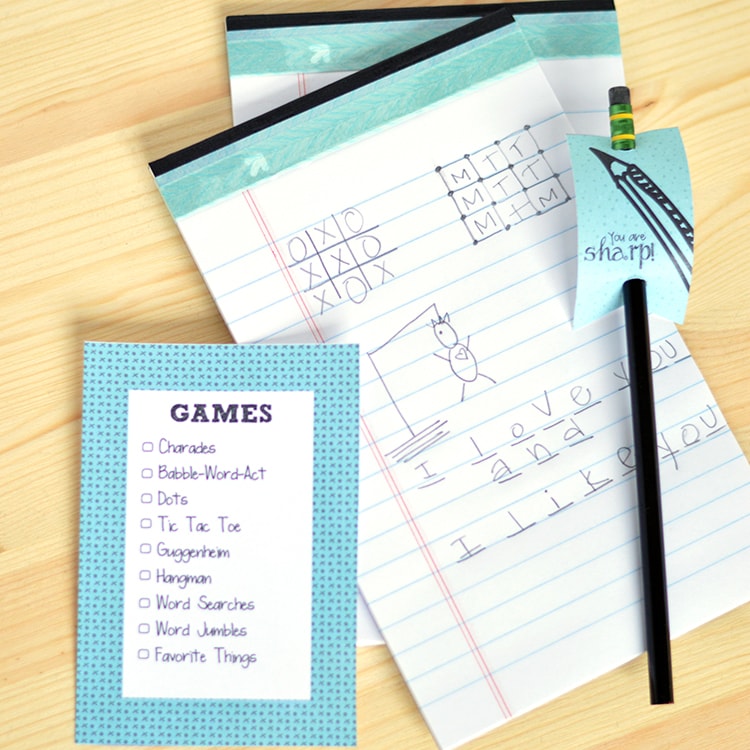 GAMES
Charades
Babble-Word-Act
Dots
Tic Tac Toe
Guggenheim
Hangman
Word Searches
Word Jumbles
Favorite Things
O X O
X X O
X O X
M T T
M T T
M T M
I love you
and
I like you
You are
sharp!